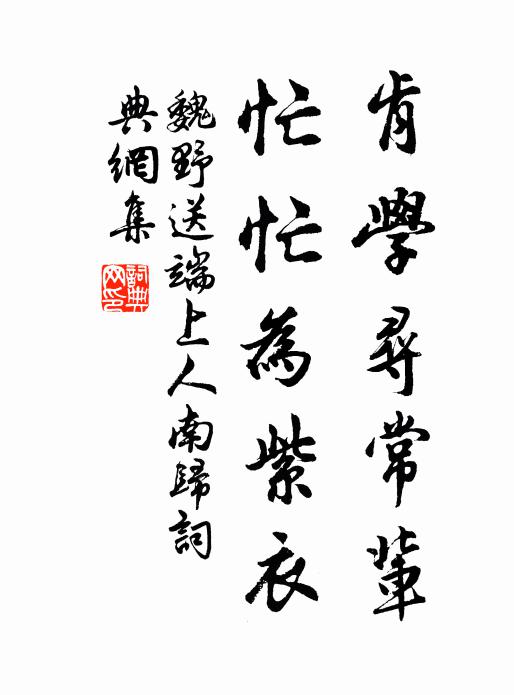 肯學尋常輩
忙忙為紫衣
魏野送端上人南歸詞
典網集
詞典網印